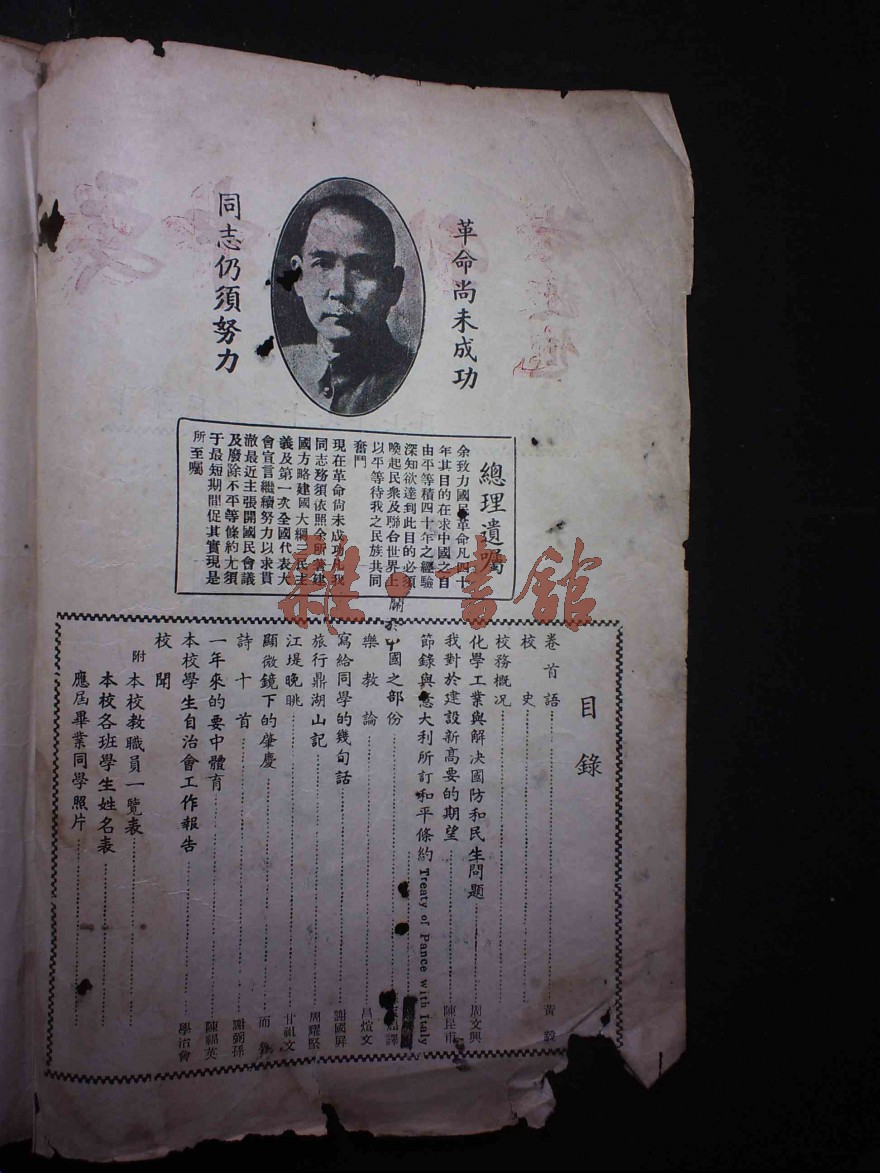 革命尚未成功
同志仍須努力
總理遺囑
余致力國民革命凡四十
年其目的在求中國之自
由平等積四十年之經驗
深知欲達到此目的必須
喚起民衆及聯合世界上
以平等待我之民族共同
奮鬥
現在革命尚未成功凡我
同志務須依照余所著建
國方略建國大綱三民主
義及第一次全國代表大
會宣言繼續努力以求貫
澈最近主張開國民會議
及廢除不平等條約尤須
于最短期間促其實現是
所至囑
雜·書館
目錄
卷首語 黃毅
校史
校務概况
化學工業與解决國防和民生問題 周文興
我對於建設新高要的期望 陳昆甫
節錄與意大利所訂和平條約 Treaty of Pance with Italy
關於中國之部份 譯
樂教論 呂煊文
寫給同學的幾句話 謝國屏
旅行鼎湖山記 周耀堅
江堤晚眺 甘祖文
顯微鏡下的肇慶 而
詩十首 謝弼孫
一年來的要中體育 陳福英
本校學生自治會工作報告 學治會
校聞
附 本校教職員一覽表
本校各班學生姓名表
應屆畢業同學照片